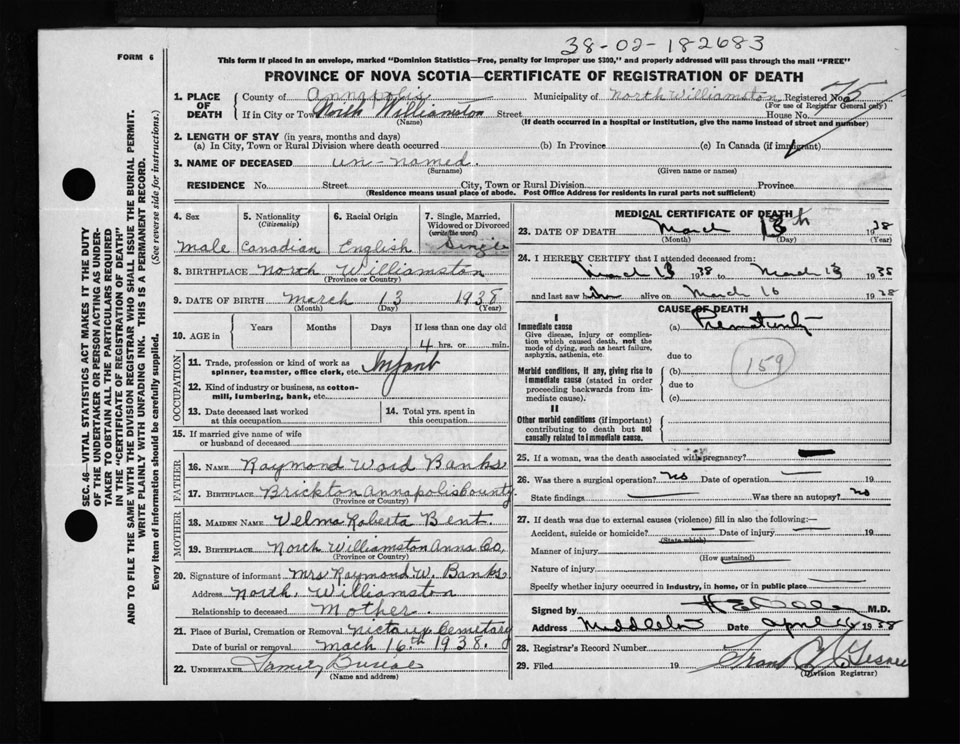 38-02-182683
FORM 6
This form if placed in an envelope, marked "Dominion Statistics—Free, penalty for improper use $300," and properly addressed will pass through the mail "FREE"
PROVINCE OF NOVA SCOTIA—CERTIFICATE OF REGISTRATION OF DEATH
1. PLACE OF DEATH County of Annapolis Municipality of North Williamston Registered No. 75
(For use of Registrar General only)
If in City or Town North Williamston Street House No.
(Name) (If death occurred in a hospital or institution, give the name instead of street and number)
2. LENGTH OF STAY (in years, months and days)
(a) In City, Town or Rural Division where death occurred (b) In Province (c) In Canada (if immigrant)
3. NAME OF DECEASED un-named.
(Surname) (Given name or names)
RESIDENCE No. Street City, Town or Rural Division Province
(Residence means usual place of abode. Post Office Address for residents in rural parts not sufficient)
4. Sex 5. Nationality (Citizenship) 6. Racial Origin 7. Single, Married, Widowed or Divorced (write the word)
Male Canadian English Single
8. BIRTHPLACE North Williamston
(Province or Country)
9. DATE OF BIRTH March 13 1938
(Month) (Day) (Year)
10. AGE in Years Months Days If less than one day old
4 hrs. or min.
OCCUPATION
11. Trade, profession or kind of work as spinner, teamster, office clerk, etc. Infant
12. Kind of industry or business, as cotton-mill, lumbering, bank, etc.
13. Date deceased last worked at this occupation 14. Total yrs. spent in this occupation
15. If married give name of wife or husband of deceased
FATHER
16. NAME Raymond Ward Banks
17. BIRTHPLACE Brickton Annapolis County
(Province or Country)
MOTHER
18. MAIDEN NAME Velma Roberta Bent.
19. BIRTHPLACE North Williamston Anna Co,
(Province or Country)
20. Signature of informant Mrs Raymond W. Banks
Address North Williamston
Relationship to deceased Mother.
21. Place of Burial, Cremation or Removal Nictaux Cemitary
Date of burial or removal Mach 16th 1938.
22. UNDERTAKER Family Burial
(Name and address)
MEDICAL CERTIFICATE OF DEATH
23. DATE OF DEATH March 13th 1938
(Month) (Day) (Year)
24. I HEREBY CERTIFY that I attended deceased from:
March 13 1938 to March 13 1938
and last saw h alive on March 16 1938
CAUSE OF DEATH
I
Immediate cause (a) Prematurity
Give disease, injury or complication which caused death, not the mode of dying, such as heart failure, asphyxia, asthenia, etc.
due to
159
Morbid conditions, if any, giving rise to immediate cause (stated in order proceeding backwards from immediate cause).
(b)
due to
(c)
II
Other morbid conditions (if important) contributing to death but not causally related to immediate cause.
25. If a woman, was the death associated with pregnancy?
26. Was there a surgical operation? no Date of operation 19
State findings Was there an autopsy? no
27. If death was due to external causes (violence) fill in also the following:—
Accident, suicide or homicide? Date of injury 19
(State which)
Manner of injury
(How sustained)
Nature of injury
Specify whether injury occurred in industry, in home, or in public place
Signed by M.D.
Address Middleton Date April 1938
28. Registrar's Record Number
29. Filed 19
(Division Registrar)
SEC. 46—VITAL STATISTICS ACT MAKES IT THE DUTY
OF THE UNDERTAKER OR PERSON ACTING AS UNDER-
TAKER TO OBTAIN ALL THE PARTICULARS REQUIRED
IN THE "CERTIFICATE OF REGISTRATION OF DEATH"
AND TO FILE THE SAME WITH THE DIVISION REGISTRAR WHO SHALL ISSUE THE BURIAL PERMIT.
WRITE PLAINLY WITH UNFADING INK. THIS IS A PERMANENT RECORD.
Every item of information should be carefully supplied. (See reverse side for instructions.)